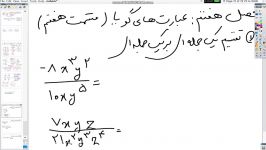 فصل هفتم: عبارت‌های گویا (قسمت هفتم)
تقسیم یک جمله‌ای بر یک جمله‌ای
-8x³y² / 10xy⁵ =
7xyz / 21x²y³z⁴ =